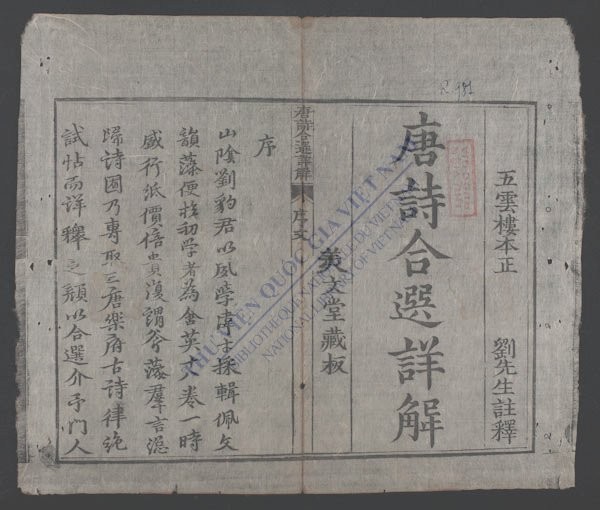 R.981
五雲樓本正
劉先生註釋
唐詩合選詳解
美文堂藏板
唐詩合選詳解
序文
序
山陰劉豹君以風學津士採輯佩文
韻藻便於初學者為含英大卷一時
盛行紙價倍貴復謂峇藻羣言總
歸詩國乃專取三唐樂府古詩律絶
試帖而詳釋之顏以合選介予門人
THƯ VIỆN QUỐC GIA VIỆT NAM
BIBLIOTHÈQUE NATIONALE DU VIETNAM
NATIONAL LIBRARY OF VIETNAM